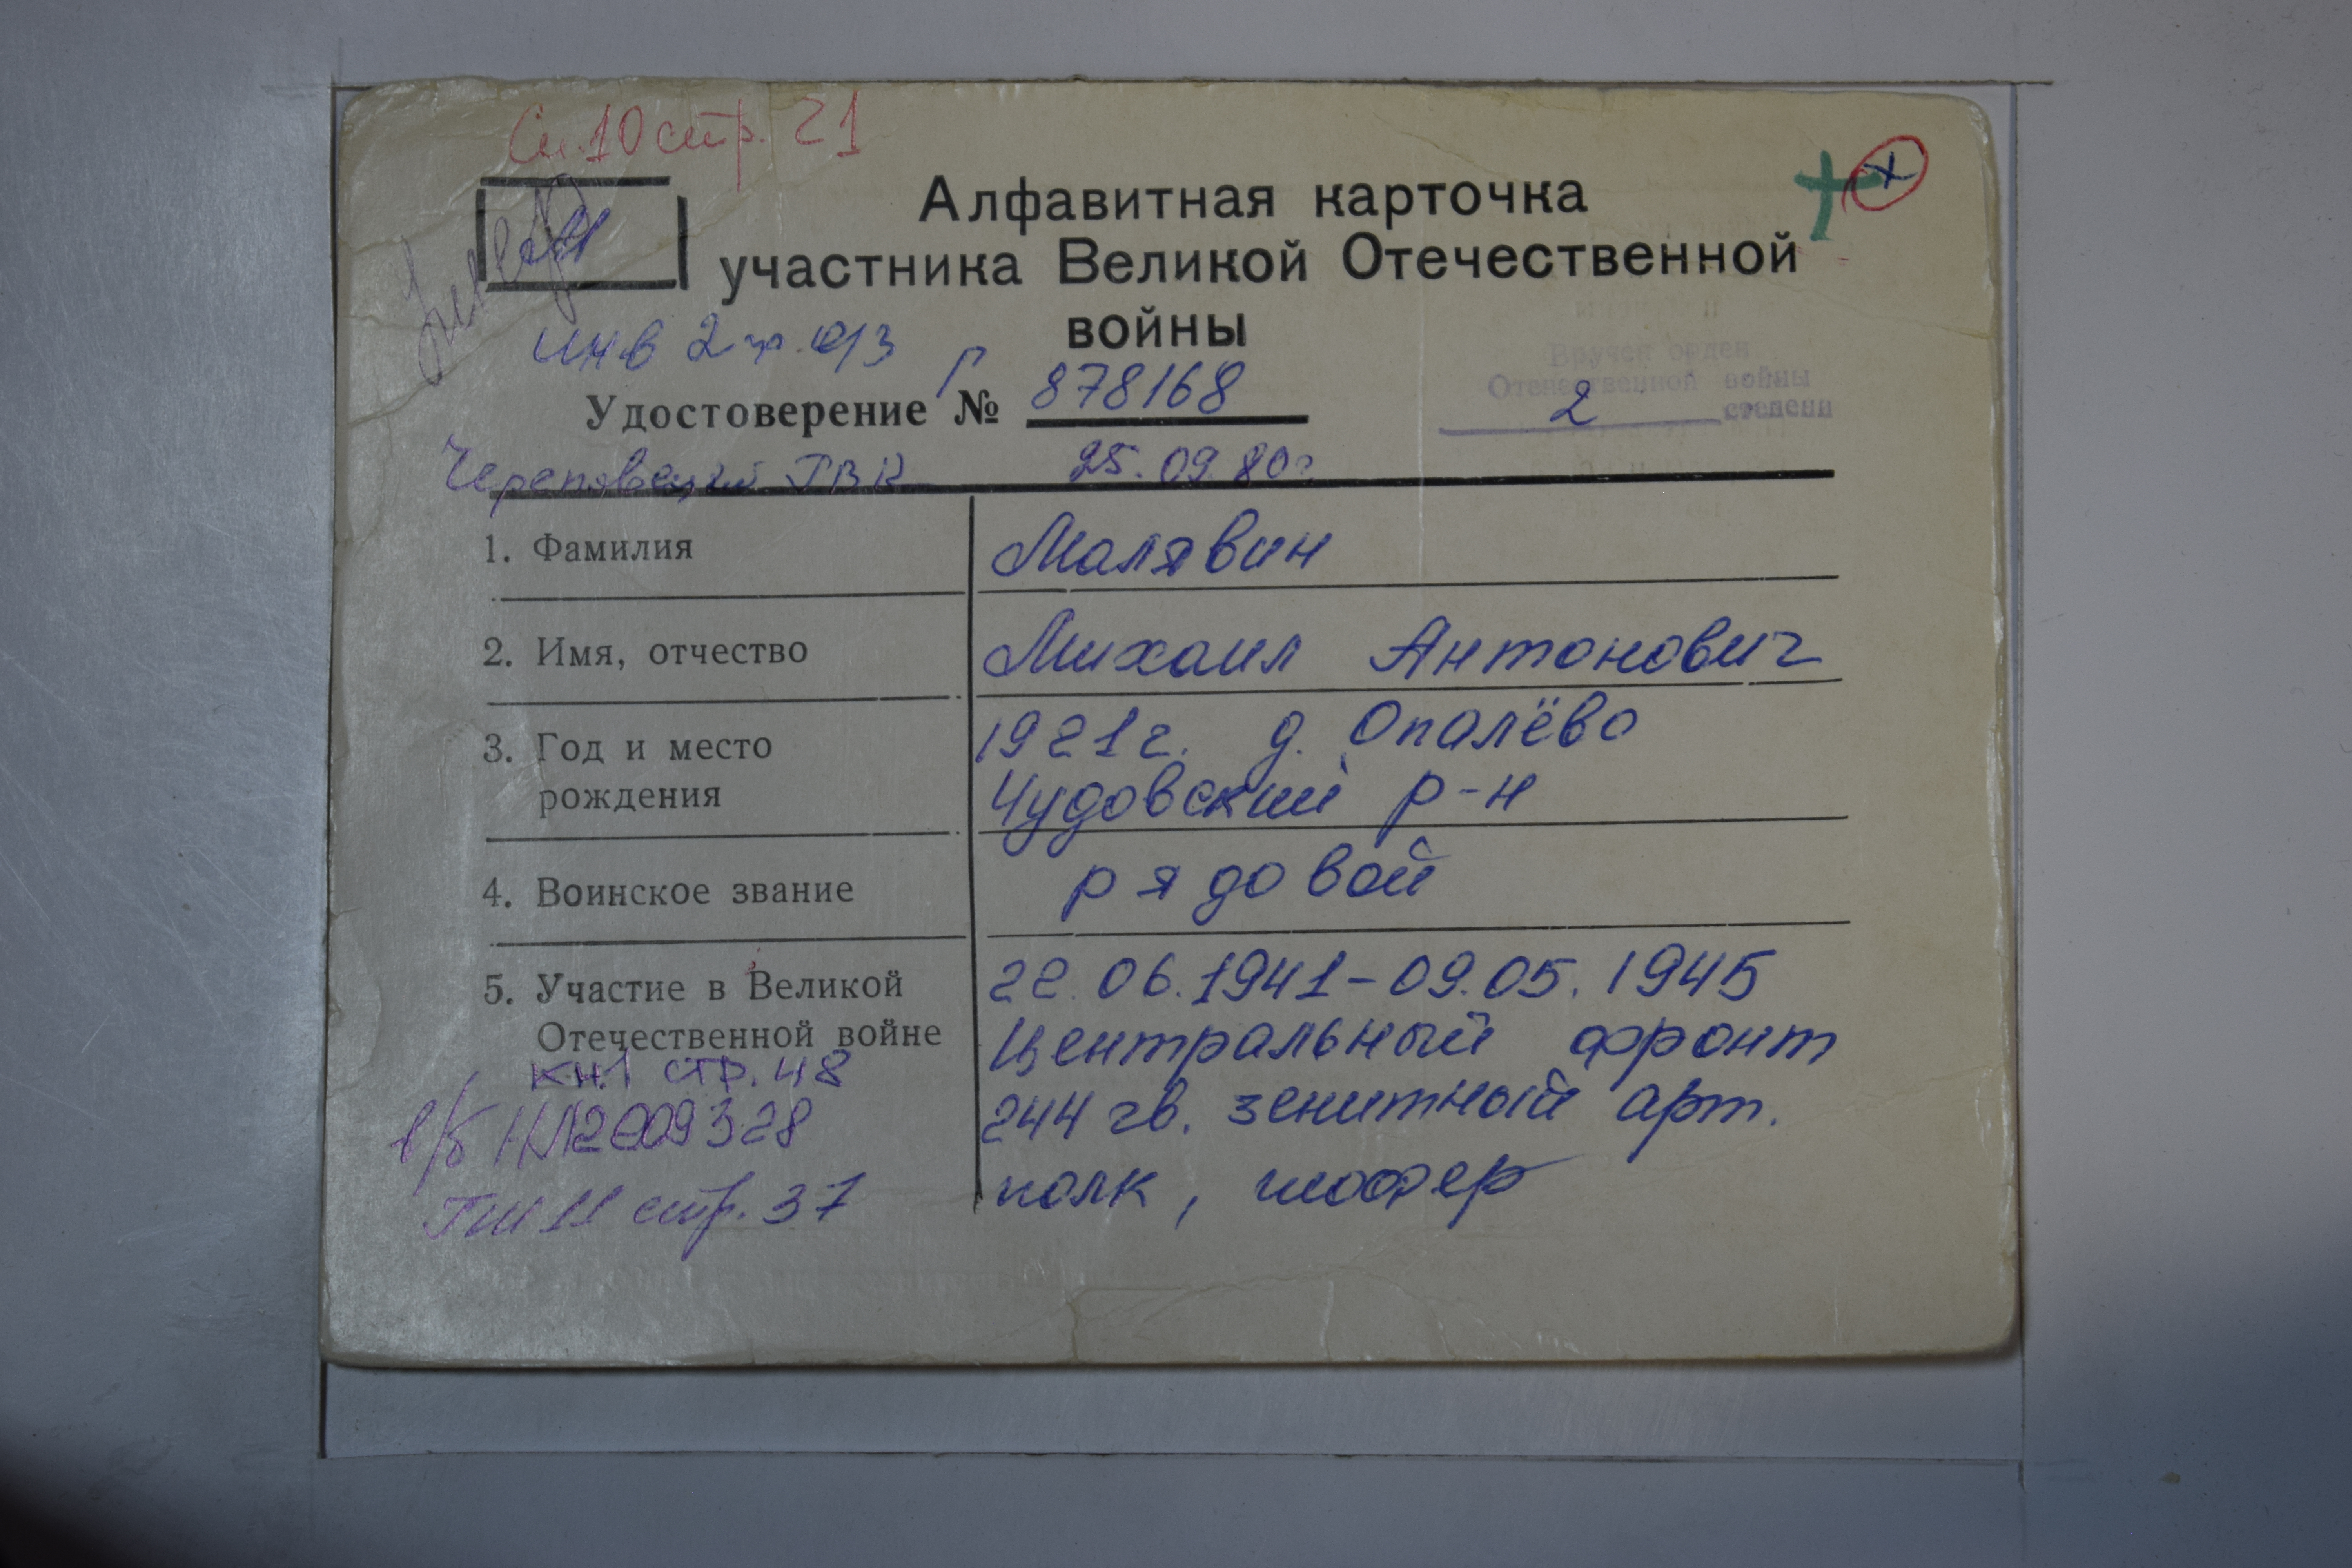 Сп.10 стр. 21
Алфавитная карточка
участника Великой Отечественной
войны
инв 2 гр. о/з
Удостоверение № Г 878168
Вручен орден
Отечественной войны
2 степени
Череповецкий ГВК 25.09.80г
1. Фамилия Малявин
2. Имя, отчество Михаил Антонович
3. Год и место 1921г. д. Опалёво
рождения Чудовский р-н
4. Воинское звание рядовой
5. Участие в Великой 22.06.1941-09.05.1945
Отечественной войне Центральный фронт
кн.1 стр. 48
244 гв. зенитный арт.
в/б НЛ2009328
полк, шофер
стр. 37